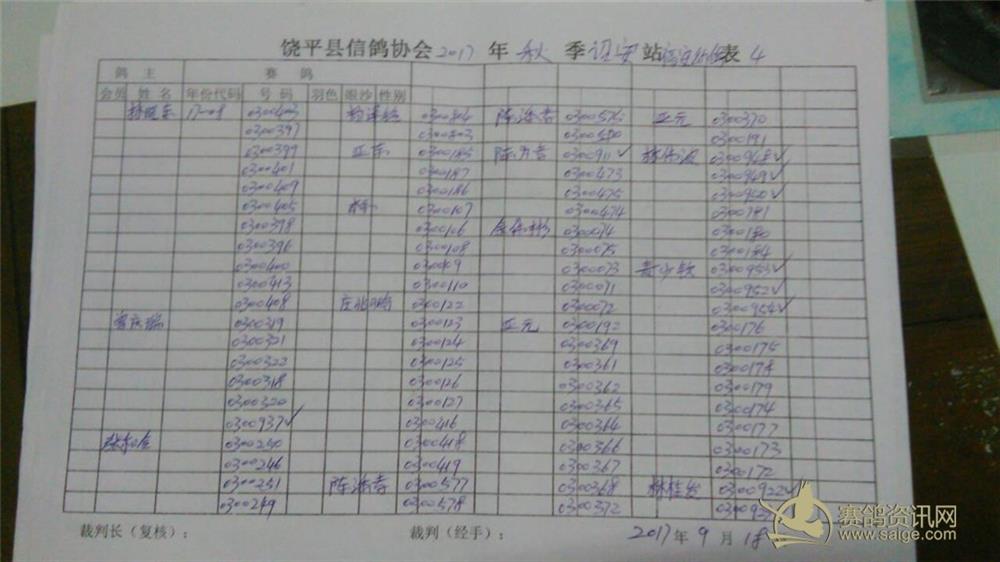 饶平县信鸽协会2017年秋季诏安站 表4
鸽主 赛鸽
会员 姓名 年份代码 号码 羽色 眼沙 性别
17-08 0300403 0300404 陈浩吉 0300575 正元 0300370
0300397 0300403 0300580 0300191
0300399 正东 0300185 0300911✓ 0300948✓
0300401 0300187 0300473 0300949✓
0300409 0300186 0300475 0300950✓
0300405 0300107 0300474 0300181
0300398 0300106 0300074 0300180
0300396 0300108 0300075 0300184
0300400 0300109 0300073 0300953✓
0300413 0300110 0300071 0300952✓
0300408 0300122 0300072 0300954✓
0300319 0300123 正元 0300192 0300176
0300321 0300124 0300369 0300175
0300322 0300125 0300361 0300178
0300318 0300126 0300362 0300179
0300320 0300127 0300365 0300174
0300937✓ 0300416 0300364 0300177
0300250 0300418 0300366 0300173
0300246 0300419 0300367 0300172
0300251 陈浩吉 0300577 0300368 0300922✓
0300249 0300578 0300372
裁判长（复核）： 裁判（经手）： 2017年9月18
赛鸽资讯网
www.saige.com